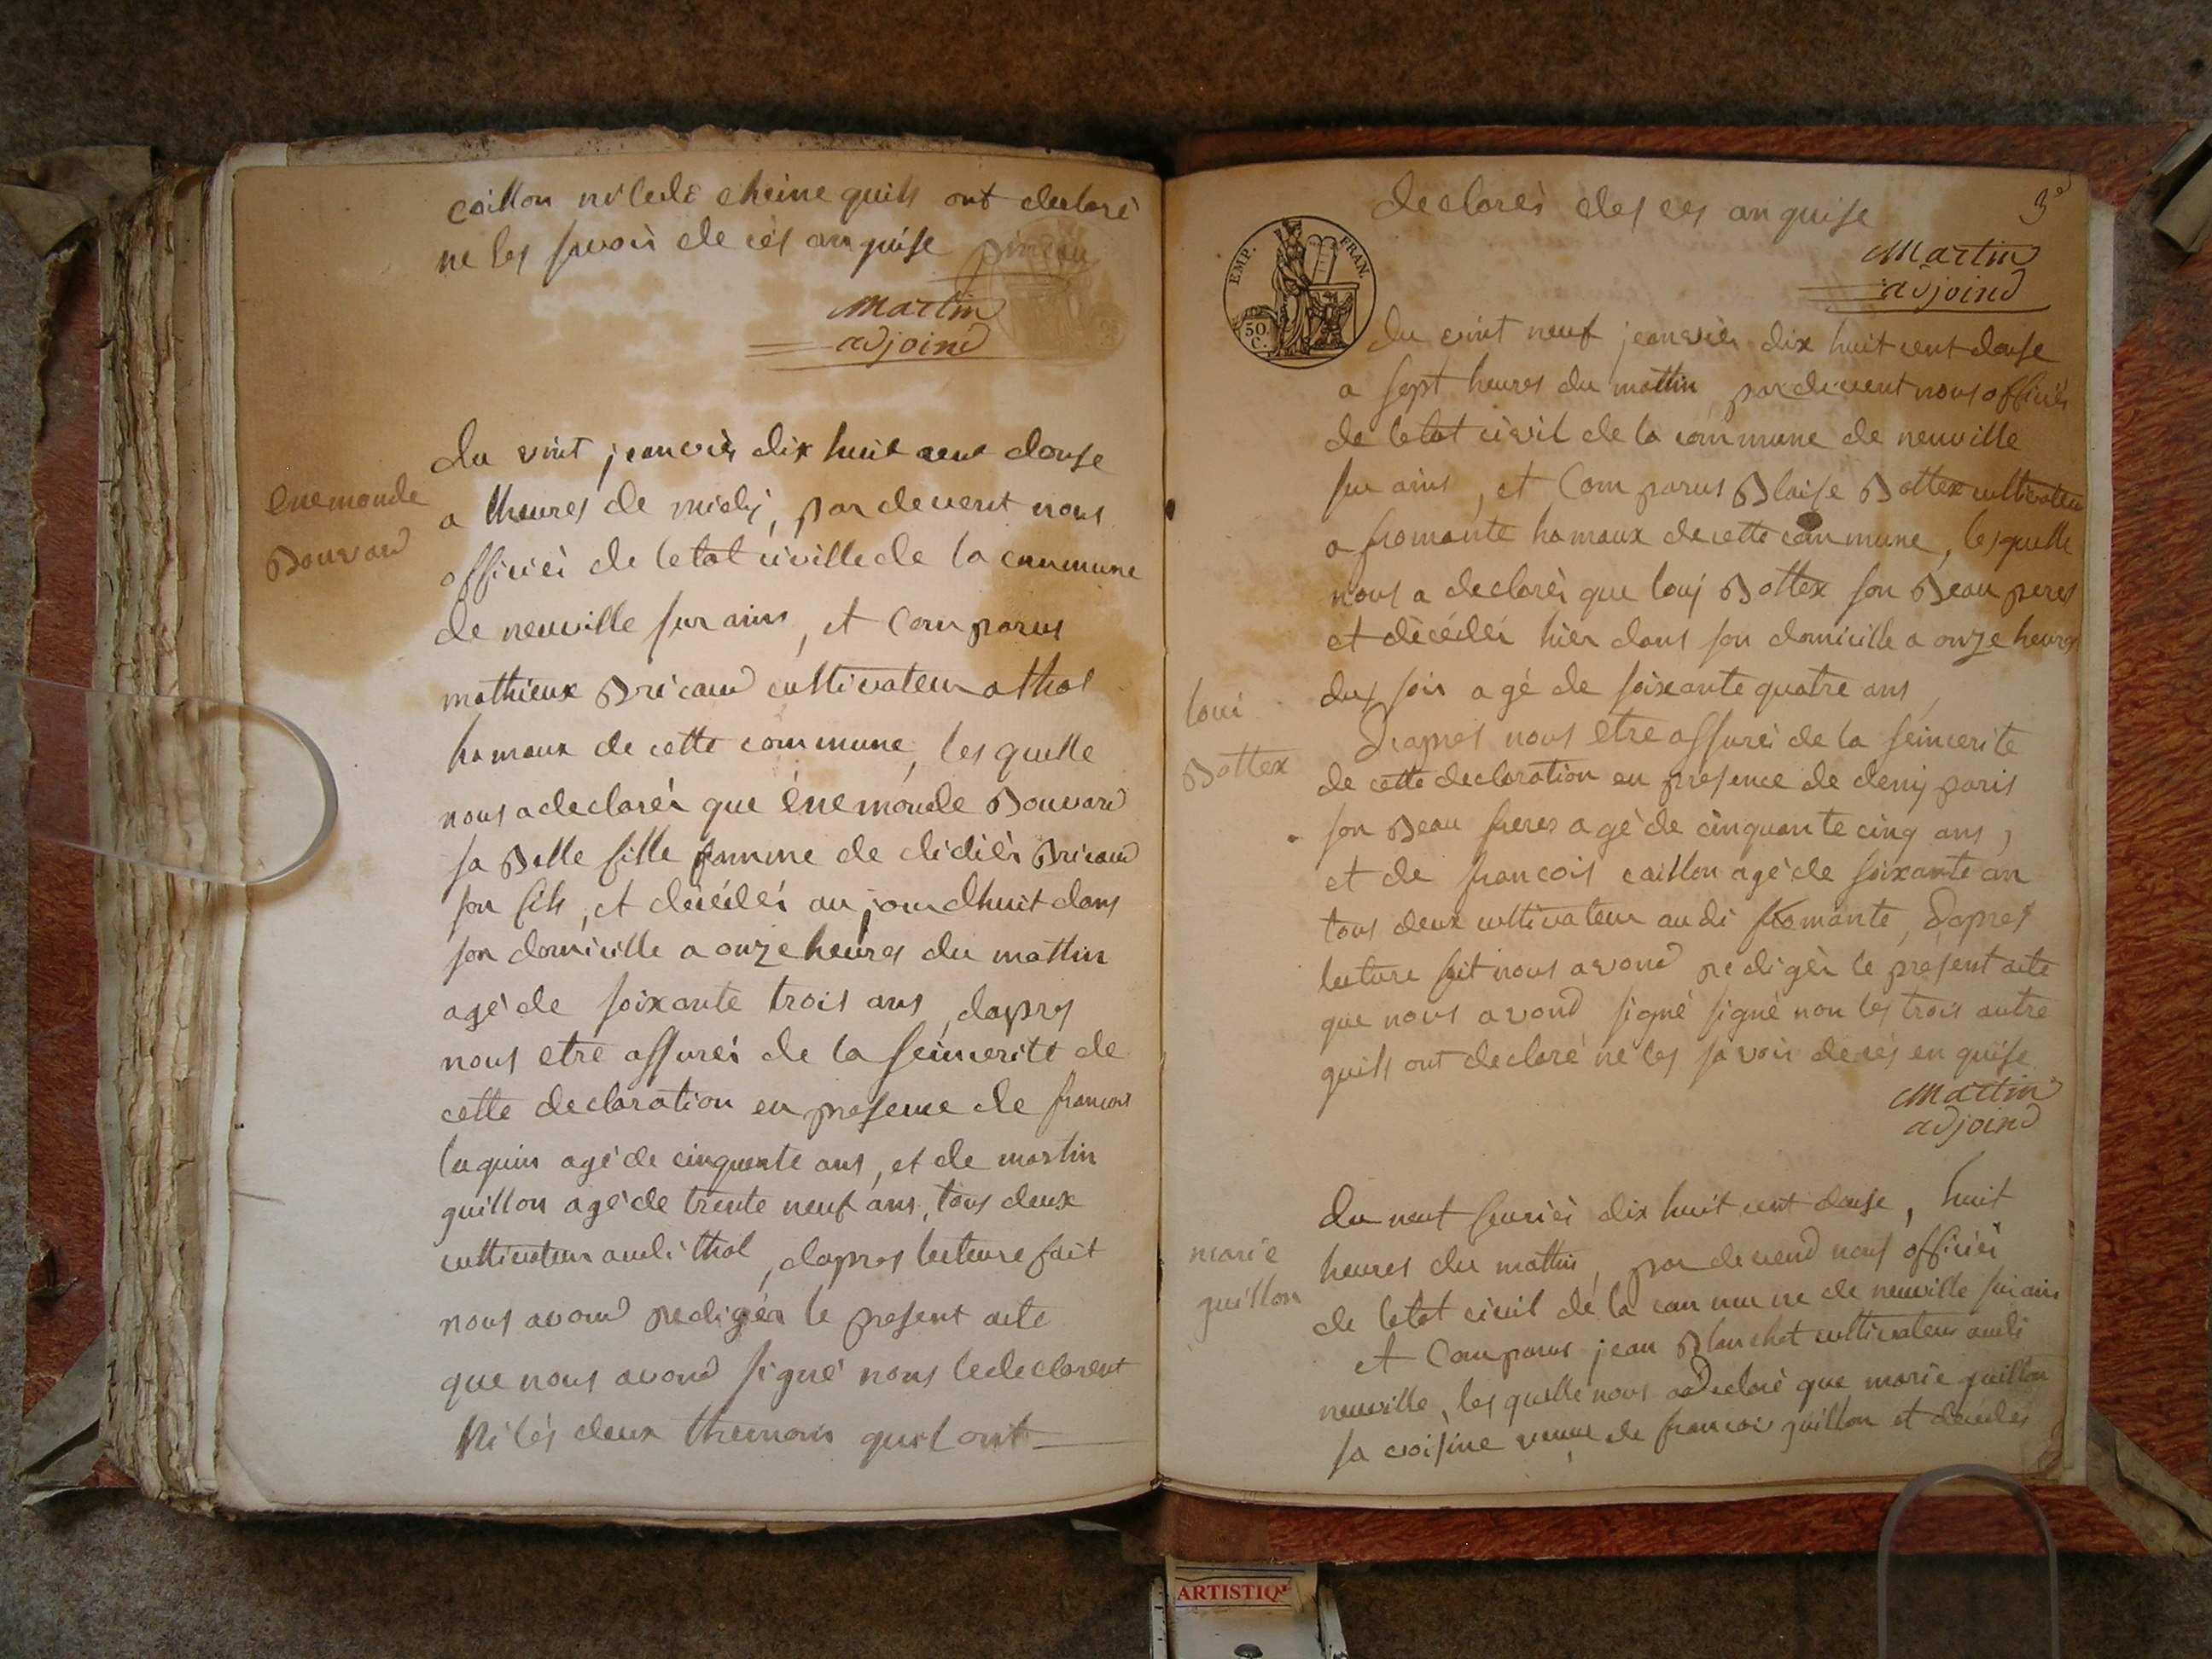 caillon ni ledi cheine quils ont declaré
ne les savoir de cés an quise
pineau
Martin
adjoind
enemonde
Bouvard
du vint jeanvier dix huit cent douse
a theures de midy, par devent nous
officiér de letat civille de la commune
de neuville sur ains, et Comparus
mathieux Bricaud cultivateur a thol
hamaux de cette commune, les quelle
nous a declarér que énemonde Bouvard
sa Belle fille femme de didiér Bricaud
son fils, et décédér aujourdhuit dans
son domicille a onze heures du mattin
agé de soixante trois ans, dapres
nous etre assurér de la seincerite de
cette declaration en presence de francois
luquin agé de cinquente ans, et de martin
guillon agé de trente neuf ans, tous deux
cultivateur audi thol, dapres lecteure fait
nous avond redigér le present acte
que nous avond signé nons le declarent
Ni lés deux themoin quil ont
declarér des ces an quise
3e
Martin
adjoind
EMP. FRAN.
50.
C.
du vint neuf jeanvier dix huit cent douse
a sept heures du mattin par devent nous officiér
de letat civil de la commune de neuville
sur ains, et Comparus Blaise Bottex cultivateur
a fromante hamaux de cette commune, les quelle
nous a declarér que louj Bottex son Beau peres
et décédér hier dans son domicille a onze heures
du soir agé de soixante quatre ans,
loui
Bottex
Dapres nous etre assurér de la seincerite
de cette declaration en presence de denij paris
son Beau freres agé de cinquante cinq ans,
et de francois caillon agé de soixante an
tous deux cultivateur audi fromante, Dapres
lecture fait nous avond redigér le present acte
que nous avond signé signé non les trois autre
quils ont declaré ne les savoir de cés en quise
Martin
adjoind
marie
guillon
du neuf fevriér dix huit cent douse, huit
heures du mattin, par devend nous officiér
de letat civil de la commune de neuville sur ains
et Comparus jean Blanchet cultivateur audi
neuville, les quelle nous a declaré que marie guillon
sa voisine veuve de francois guillon et décédér
ARTISTIQ